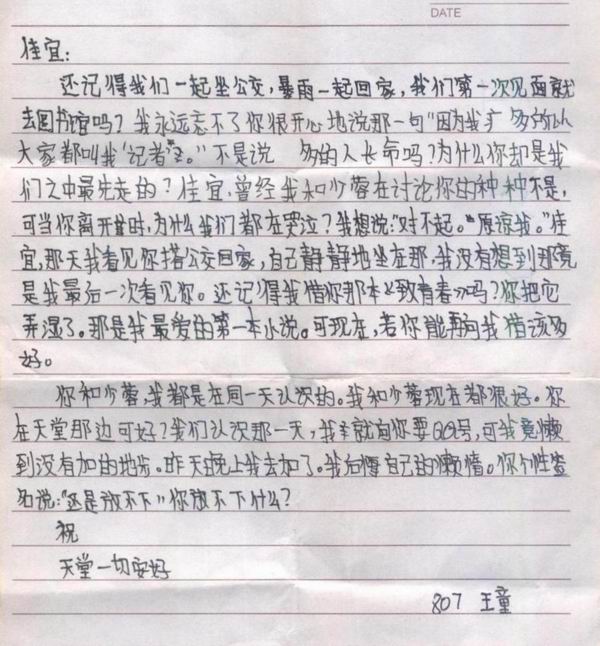 DATE
佳宜:
还记得我们一起坐公交,暴雨一起回家,我们第一次见面就
去图书馆吗?我永远忘不了你很开心地说那一句"因为我
大家都叫我'记者'。"不是说 的人长命吗?为什么你却是我
们之中最先走的?佳宜,曾经我和少蓉在讨论你的种种不是,
可当你离开时,为什么我们都在哭泣?我想说:"对不起。""原谅我。"佳
宜,那天我看见你搭公交回家,自己静静地坐在那,我没有想到那竟
是我最后一次看见你。还记得我借你那本《致青春》吗?你把它
弄湿了。那是我最爱的第一本小说。可现在,若你能再向我借该多
好。
你和少蓉,我都是在同一天认识的。我和少蓉现在都很好。你
在天堂那边可好?我们认识那一天,我就向你要QQ号,可我竟懒
到没有加的地步。昨天晚上我去加了。我后悔自己的懒惰。你个性签
名说:"还是放不下"你放不下什么?
祝
天堂一切安好
807 王童